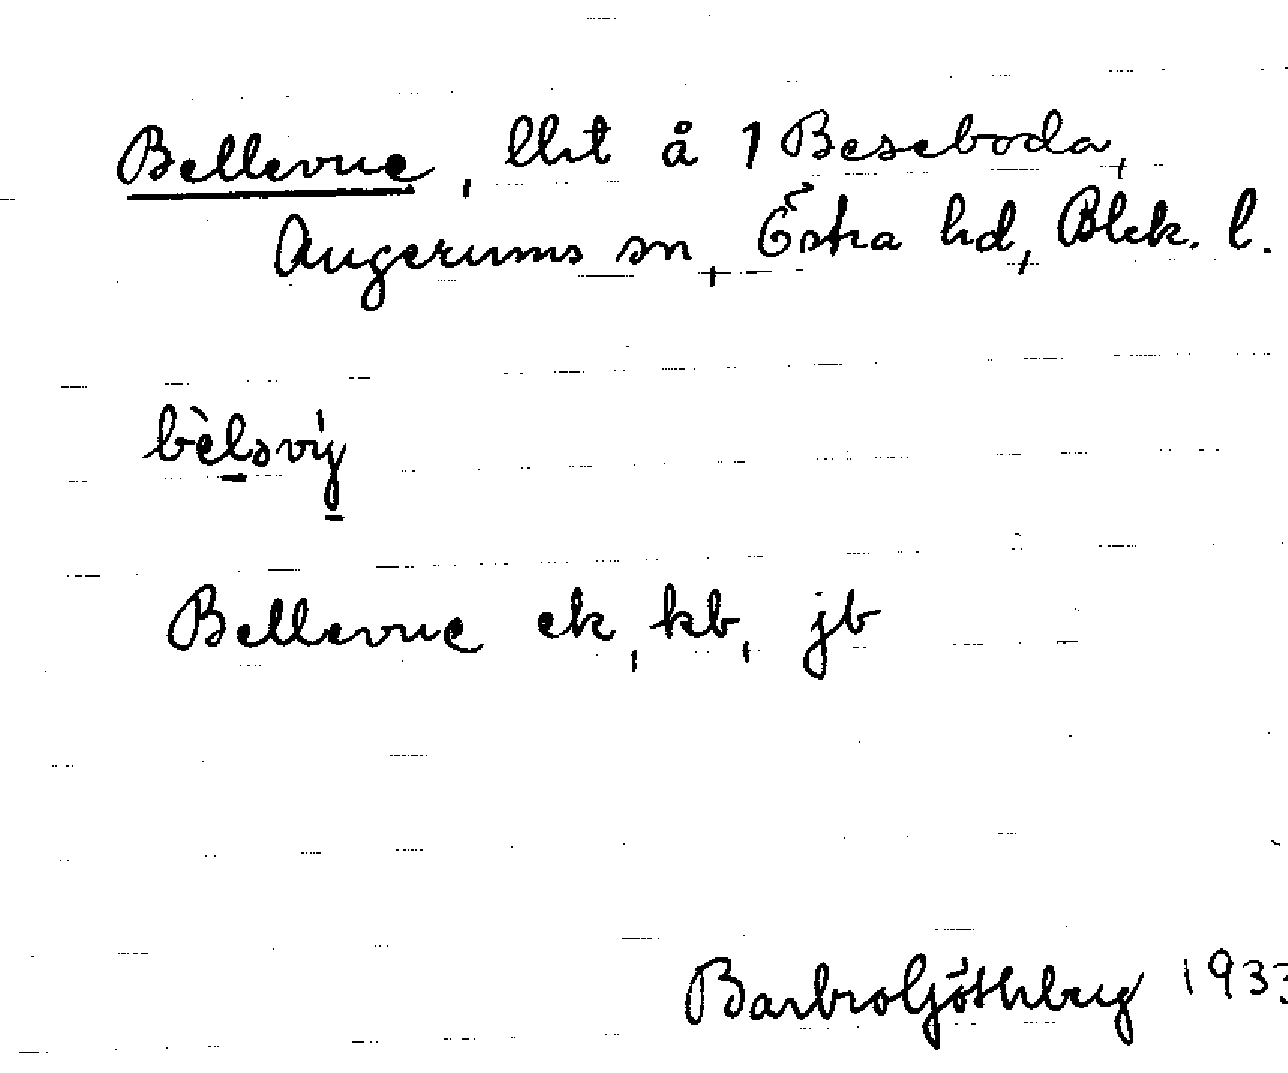 Bellevue, lht å 1 Beseboda,
Augerums sn, Östra hd, Blek. l.
Bellevue ek, kb, jb
Barbro Göthberg 1933